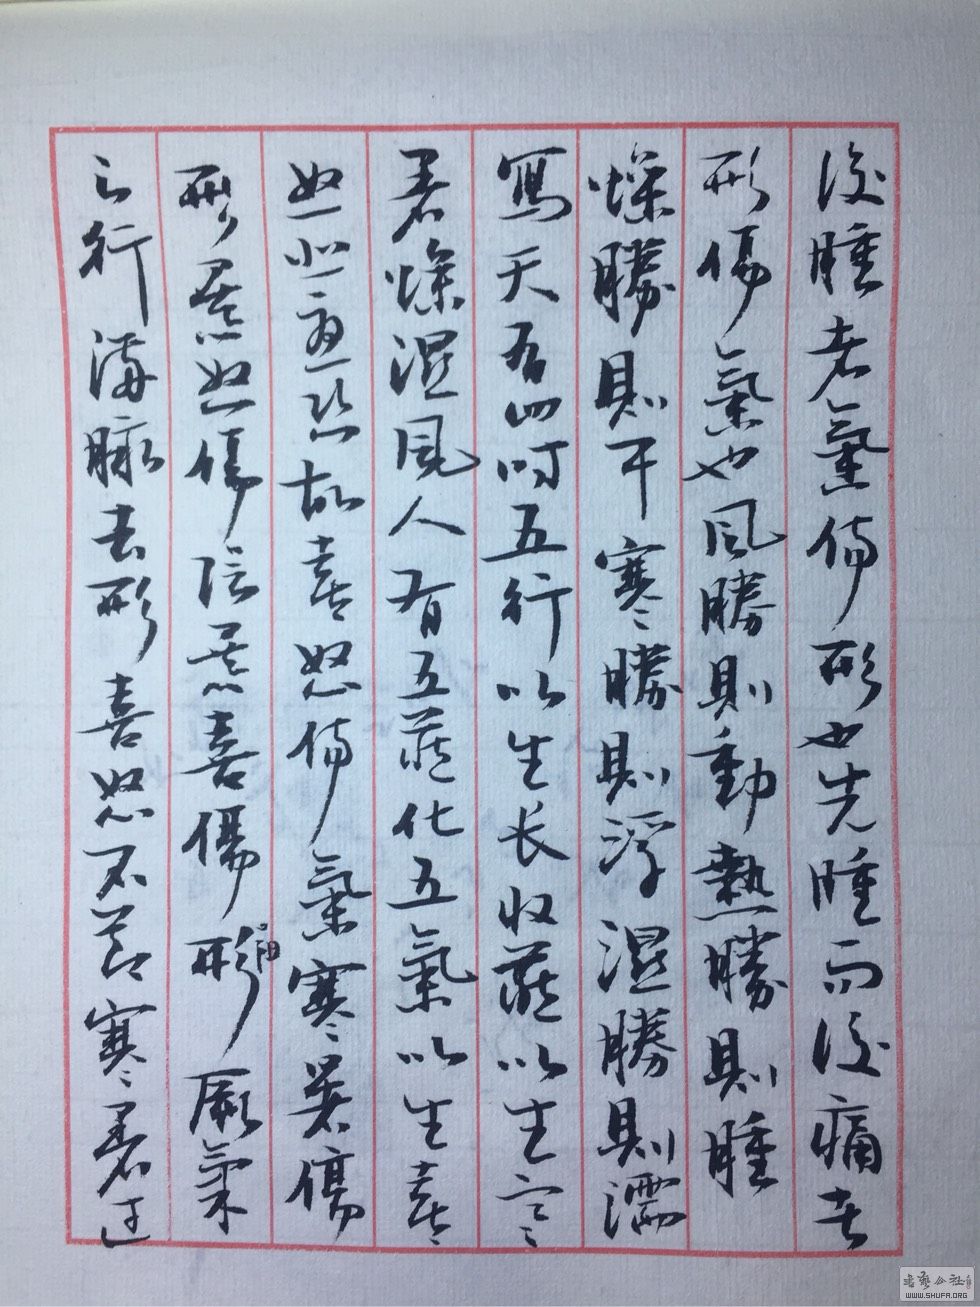 後腫者氣傷形也先腫而後痛者
形傷氣也風勝則動熱勝則腫
燥勝則干寒勝則浮濕勝則濡
寫天有四时五行以生长收藏以生寒
暑燥濕風人有五藏化五氣以生喜
怒悲憂恐故喜怒傷氣寒暑傷
形暴怒傷陰暴喜傷形陽厥氣
上行滿脉去形喜怒不节寒暑过
書藝公社
WWW.SHUFA.ORG